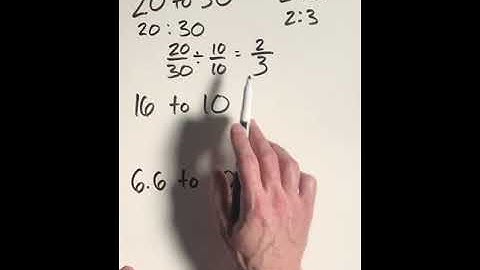 20 to 30
20:30
2:3
20/30 ÷ 10/10 = 2/3
16 to 10
6.6 to